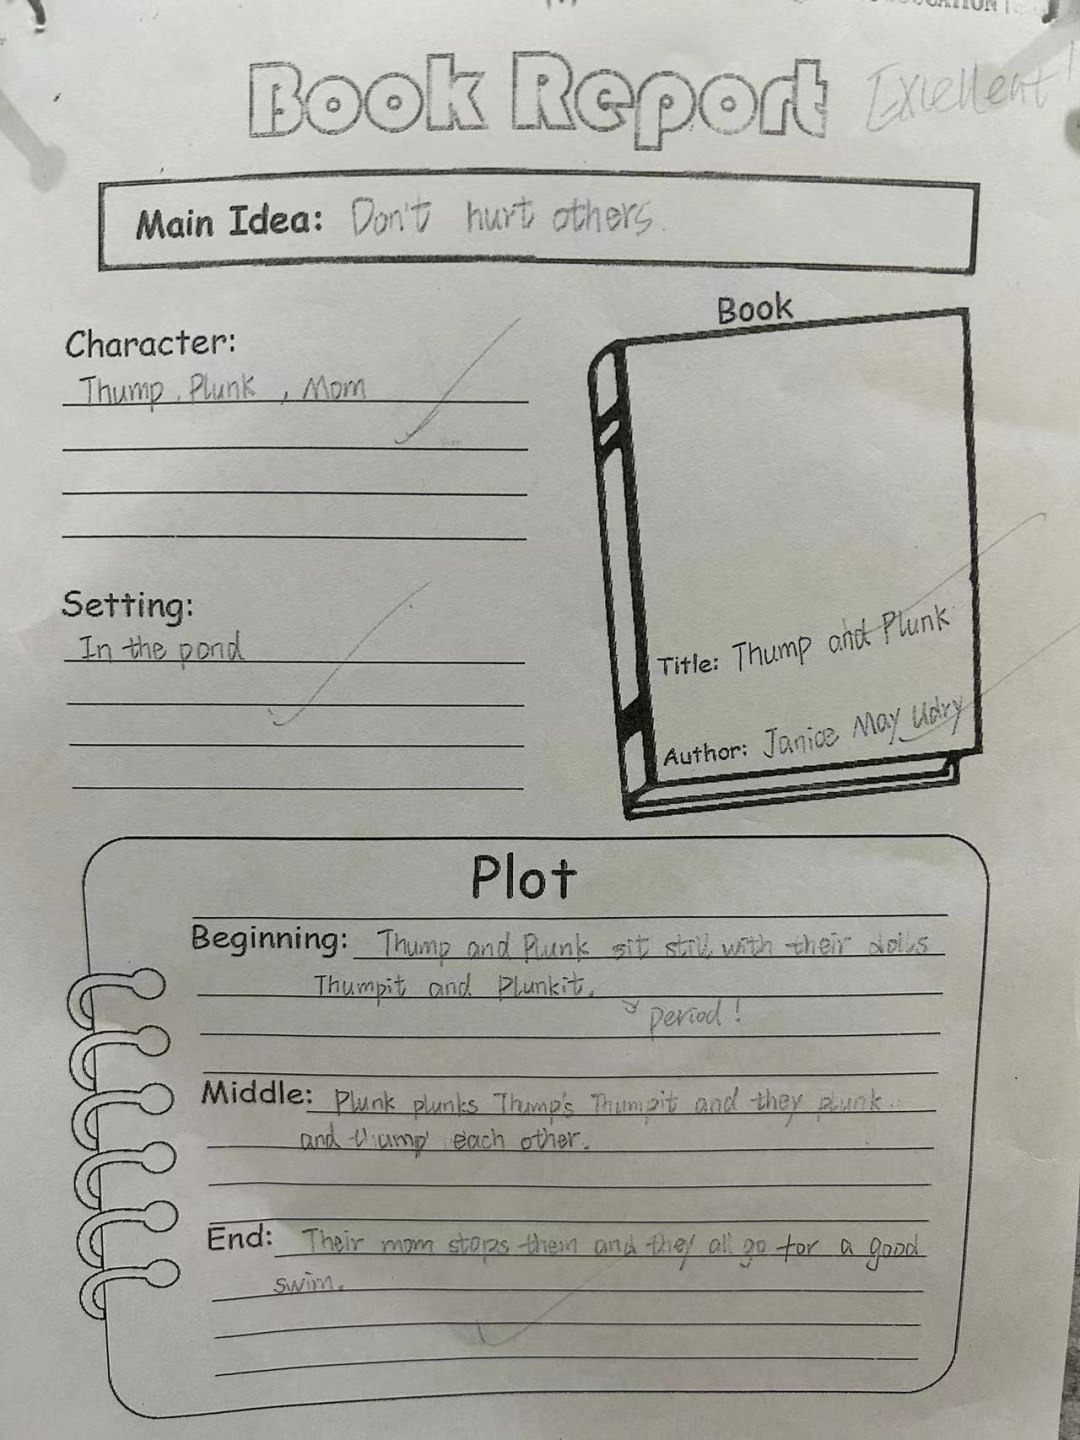 Book Report
Excellent!
Main Idea: Don't hurt others.
Character:
Thump, Plunk, Mom
Setting:
In the pond
Book
Title: Thump and Plunk
Author: Janice May Udry
Plot
Beginning: Thump and Plunk sit still with their dolls
Thumpit and Plunkit.
period!
Middle: Plunk plunks Thump's Thumpit and they plunk
and thump each other.
End: Their mom stops them and they all go for a good
swim.